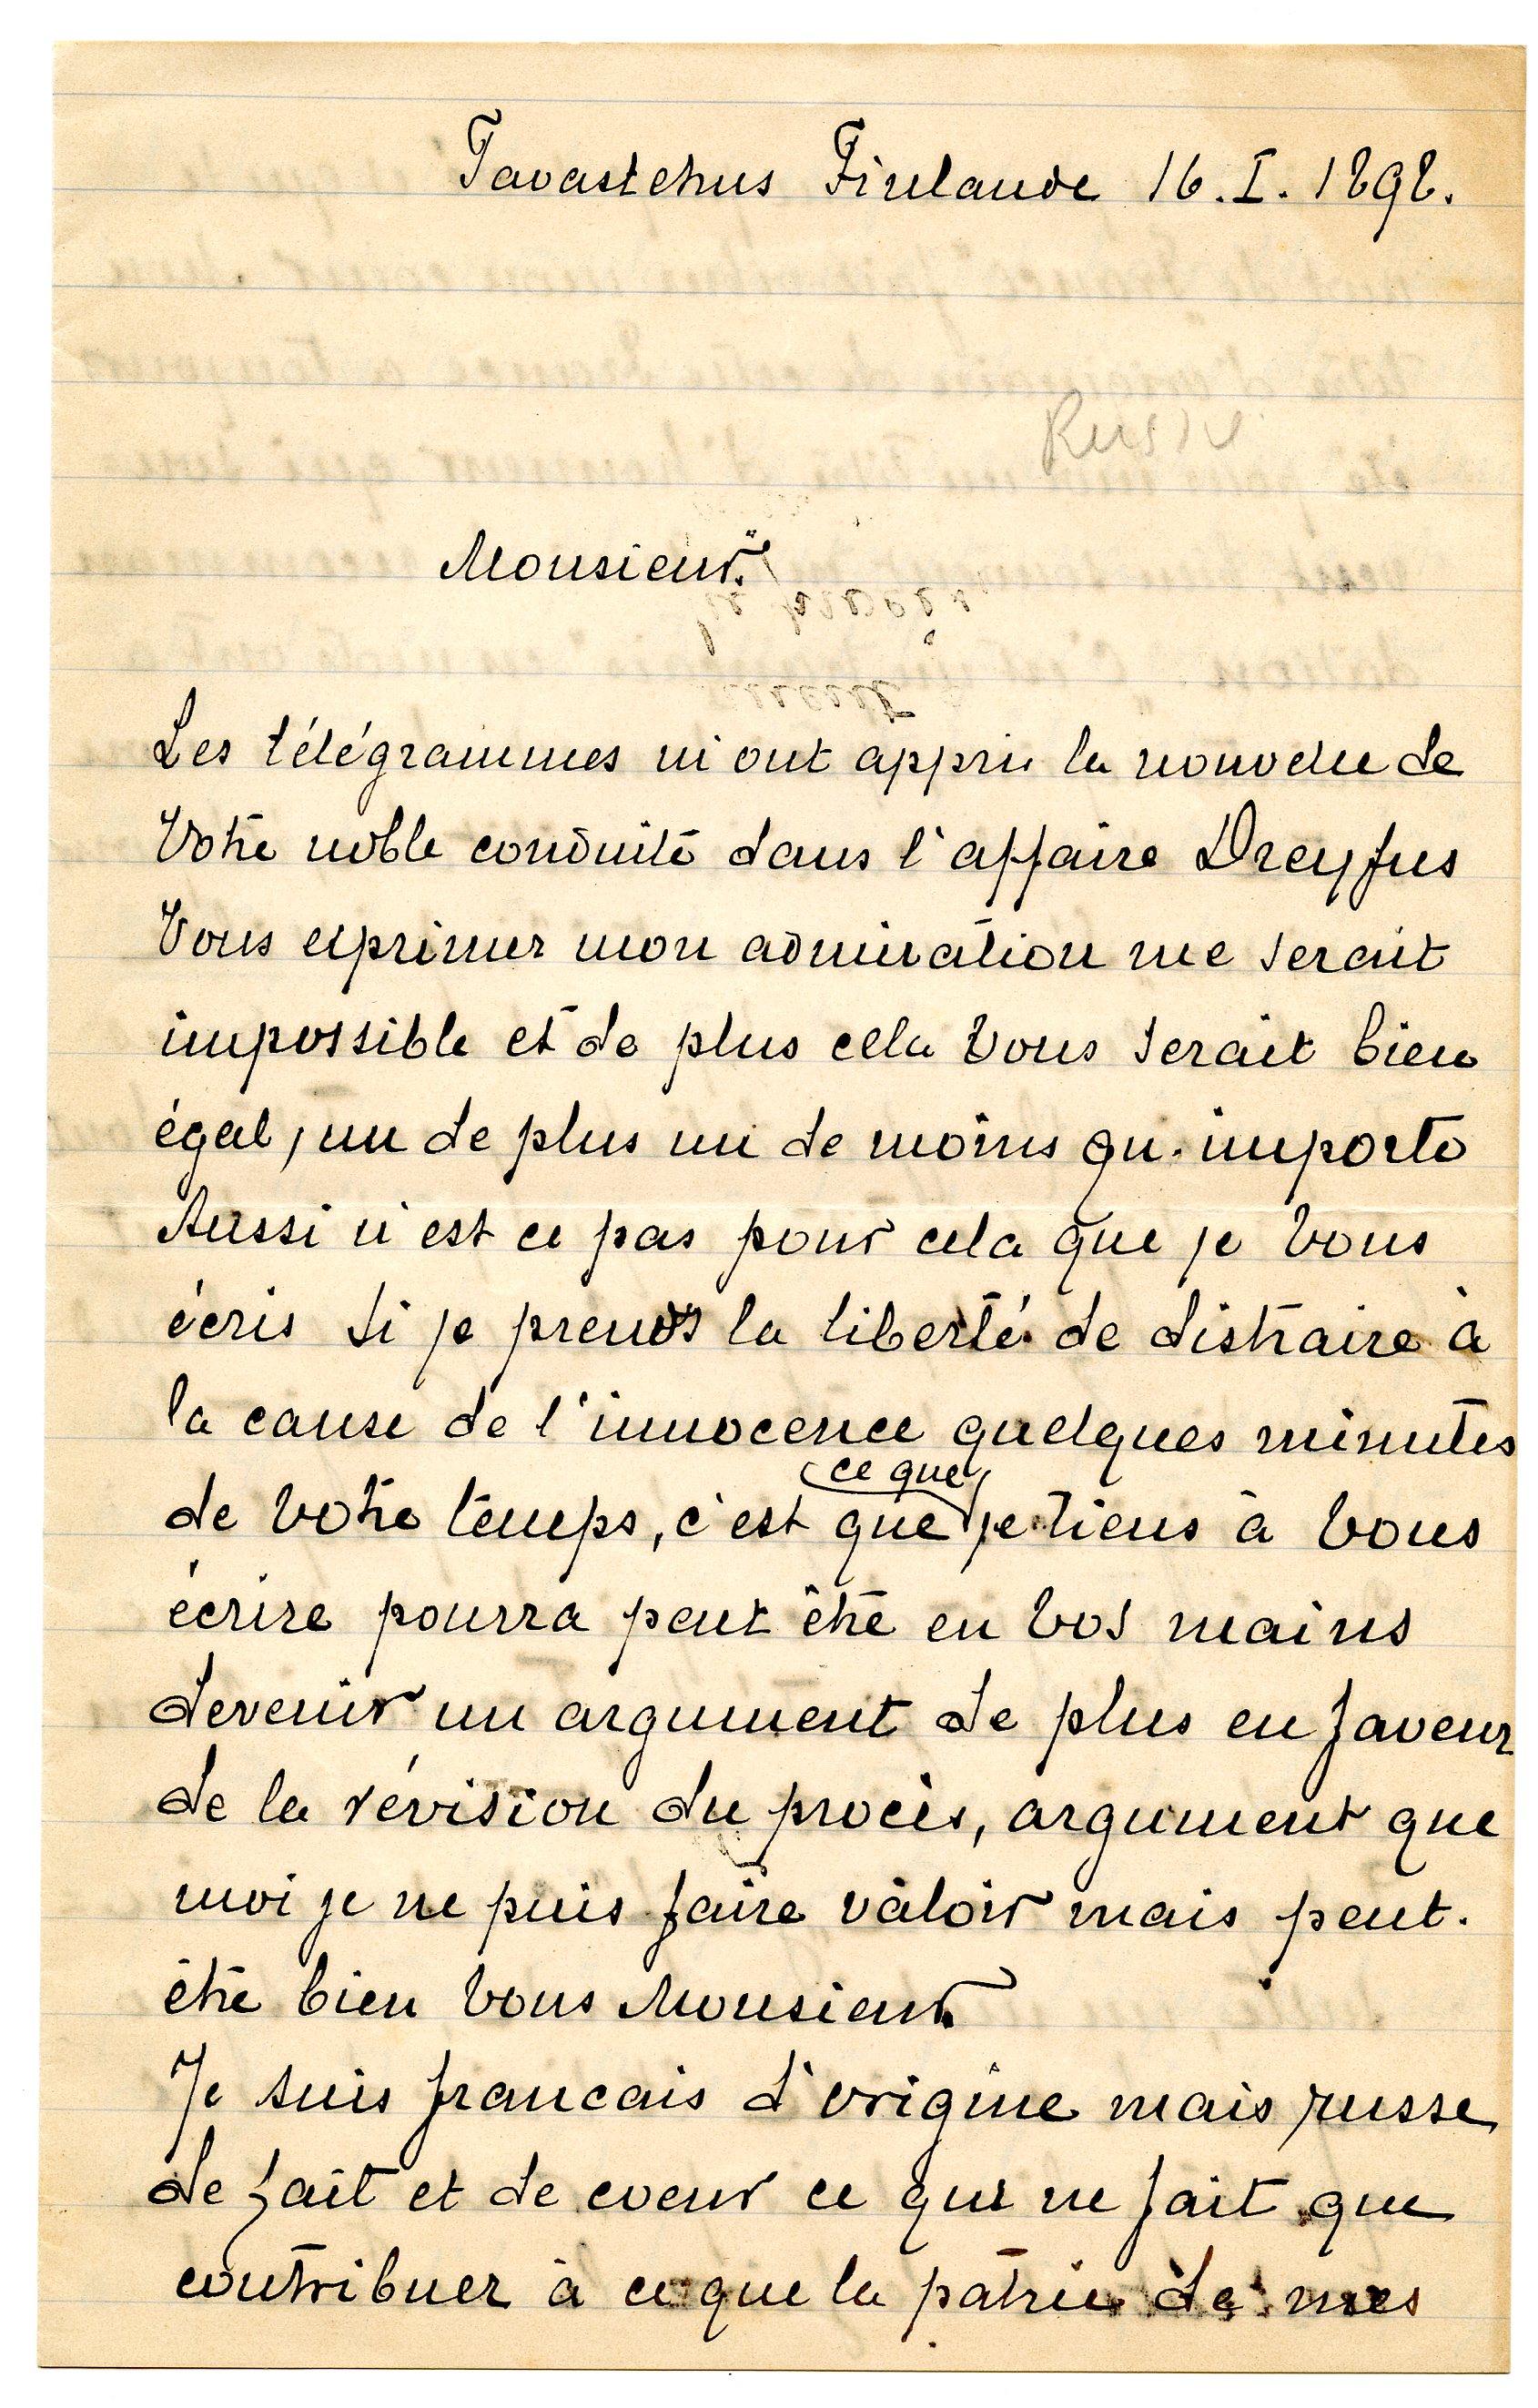 Tavastehus Finlande 16.I.1898.
Russie
Monsieur.
Les télégrammes m'ont appris la nouvelle de
Votre noble conduite dans l'affaire Dreyfus
Vous exprimer mon admiration me serait
impossible et de plus cela Vous serait bien
égal, un de plus un de moins qu'importe
Aussi n'est ce pas pour cela que je Vous
écris si je prends la liberté de distraire à
la cause de l'innocence quelques minutes
ce que
de Votre temps, c'est que je tiens à Vous
écrire pourra peut être en Vos mains
devenir un argument de plus en faveur
de la révision du procès, argument que
moi je ne puis faire valoir mais peut-
être bien Vous Monsieur.
Je suis francais d'origine mais russe
de fait et de coeur ce qui ne fait que
contribuer à ce que la patrie de mes